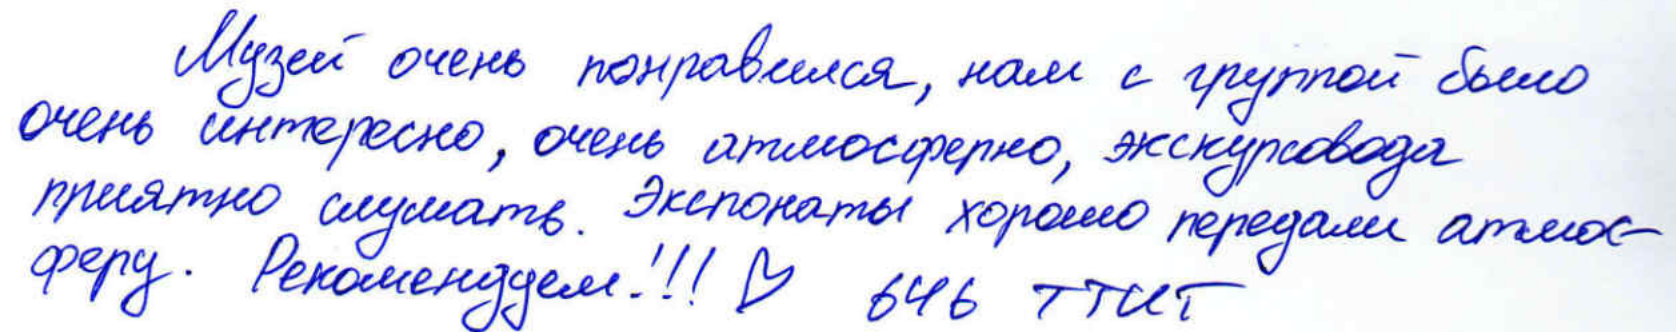 Музей очень понравился, нам с группой было
очень интересно, очень атмосферно, экскурсовода
приятно слушать. Экспонаты хорошо передали атмос-
феру. Рекомендуем!!! ♡ 646 ТТИТ